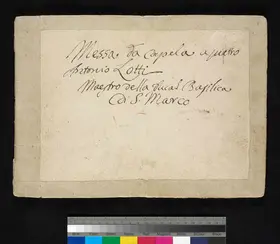 Messa da Capela a quatro
Antonio Lotti
Maestro della Ducal Basilica
Di S. Marco